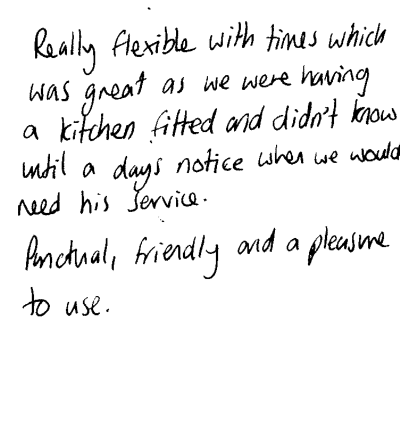 Really flexible with times which
was great as we were having
a kitchen fitted and didn't know
until a days notice when we would
need his service.
Punctual, friendly and a pleasure
to use.